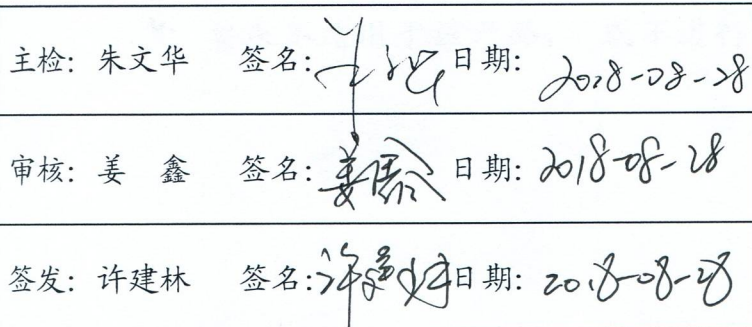 主检: 朱文华 签名: 日期: 2018-08-28
审核: 姜 鑫 签名: 姜 日期: 2018-08-28
签发: 许建林 签名: 许建林 日期: 2018-08-28